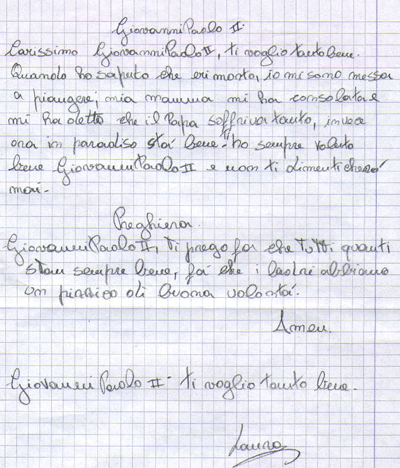 Giovanni Paolo II.
Carissimo Giovanni Paolo II, ti voglio tanto bene.
Quando ho saputo che eri morto, io mi sono messa
a piangere, mia mamma mi ha consolata e
mi ha detto che il Papa soffriva tanto, invece
ora in paradiso stai bene. Ti ho sempre voluto
bene Giovanni Paolo II e non ti dimenticheró
mai.
Preghiera.
Giovanni Paolo II, ti prego fa che tutti quanti
stian sempre bene, fa che i ladri abbiano
un pizzico di buona volontá.
Amen.
Giovanni Paolo II ti voglio tanto bene.
Laura